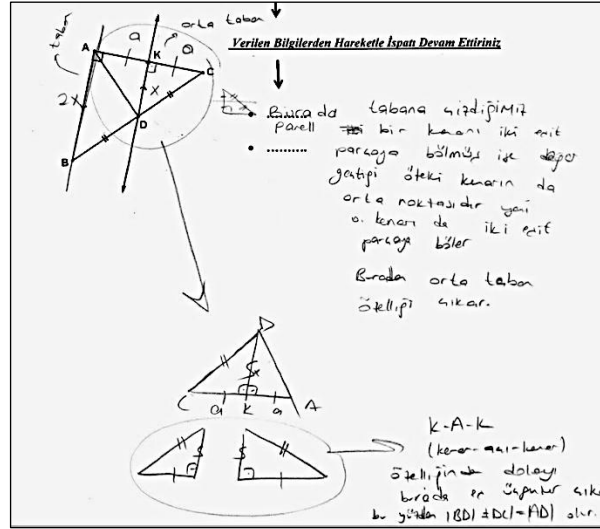 orta taban
taban
Verilen Bilgilerden Hareketle İspatı Devam Ettiriniz
A
a
K
a
C
2x
x
D
B
• Burada tabana çizdiğimiz
parell bir kenarı iki eşit
• ......... parçaya bölmüş ise doğru
geçtiği öteki kenarın da
orta noktasıdır yani
o. kenarı da iki eşit
parçaya böler
Buradan orta taban
özelliği çıkar.
D
x
C
a
K
a
A
K-A-K
(kenar-açı-kenar)
özelliğinden dolayı
burada eş üçgenler
bu yüzden |BD| = |DC| = |AD| olur.